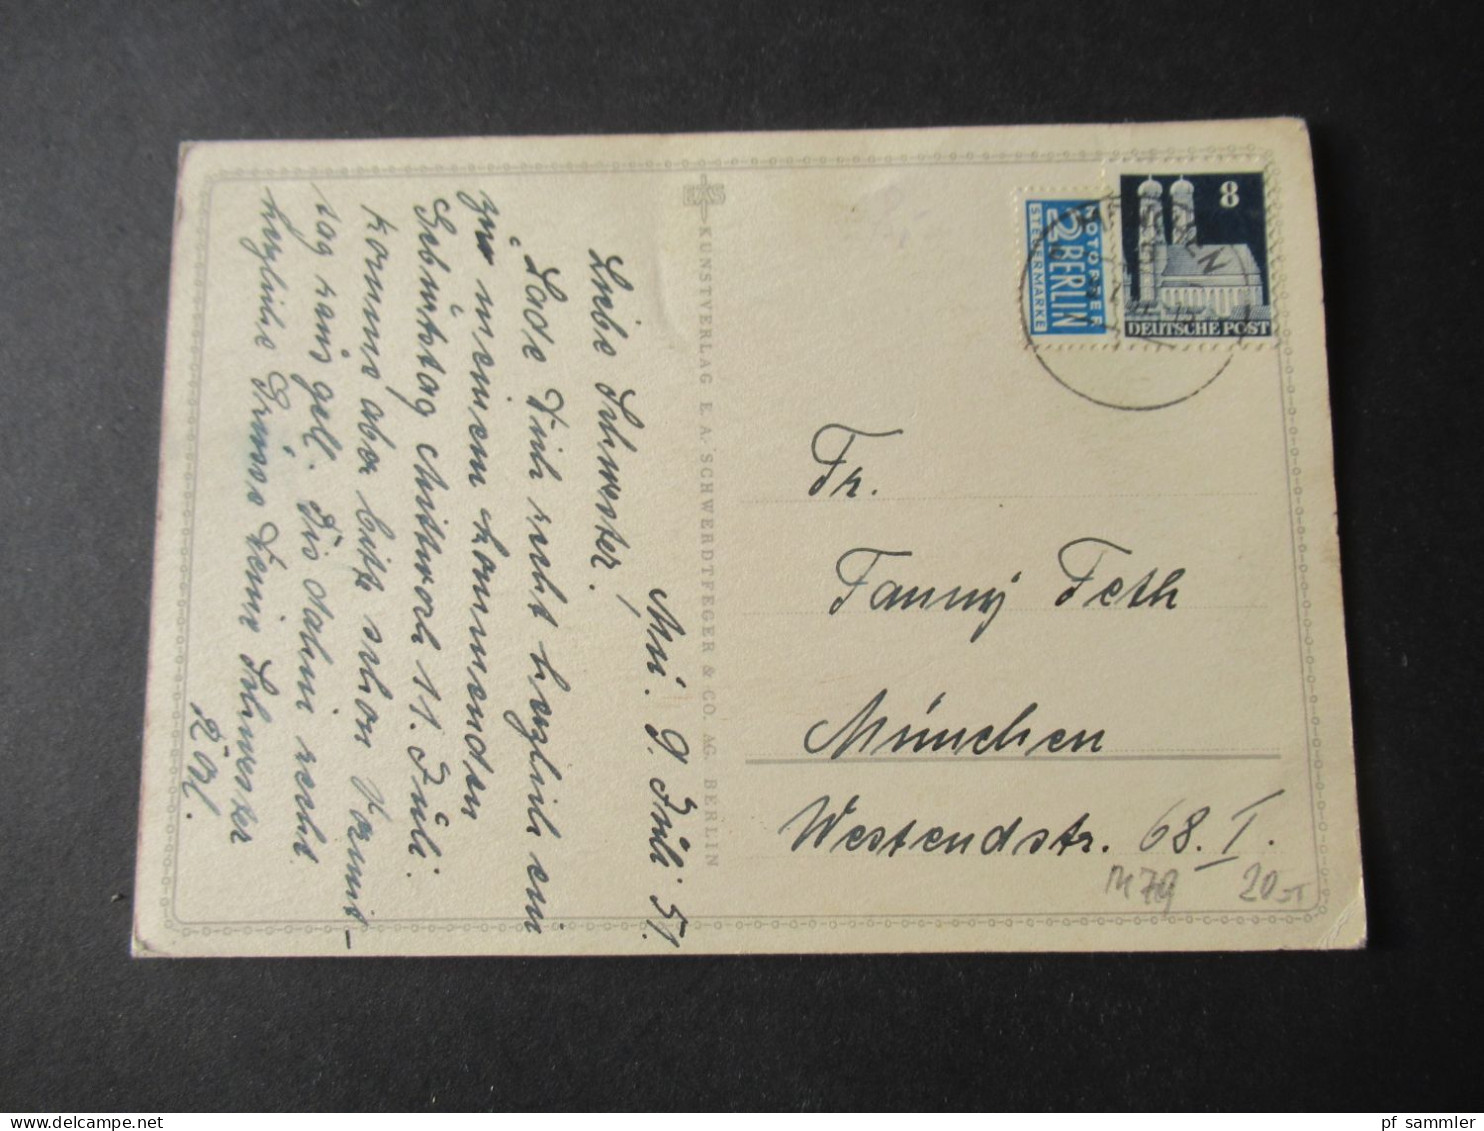 Mü. 9. Juli 51.
Liebe Schwester.
Lade Dich recht herzlich ein
zu meinem kommenden
Geburtstag Mittwoch 11. Juli.
komme aber bitte schon Vormit-
tag raus gell. Bis dahin recht
herzliche Grüsse Deine Schwester
KUNSTVERLAG E. A. SCHWERDTFEGER & CO. AG. BERLIN
NOTOPFER
2 BERLIN
STEUERMARKE
8
DEUTSCHE POST
Fr.
Fanny Feth
München
Westendstr. 68. I.
M 79
20
pf sammler